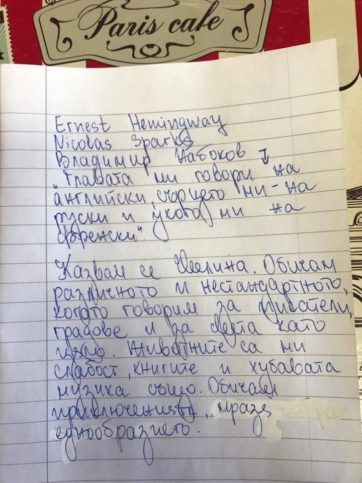 Paris cafe
Ernest Hemingway
Nicolas Sparks
Владимир Набоков ↓
„Главата ми говори на
английски, сърцето ми - на
руски и ухото ми на
френски“.
Казвам се Евелина. Обичам
различното и нестандартното,
когато говорим за писатели,
градове и за света като
цяло. Животните са ми
слабост, книгите и хубавата
музика също. Обичам
приключенията, мразя
еднообразието.